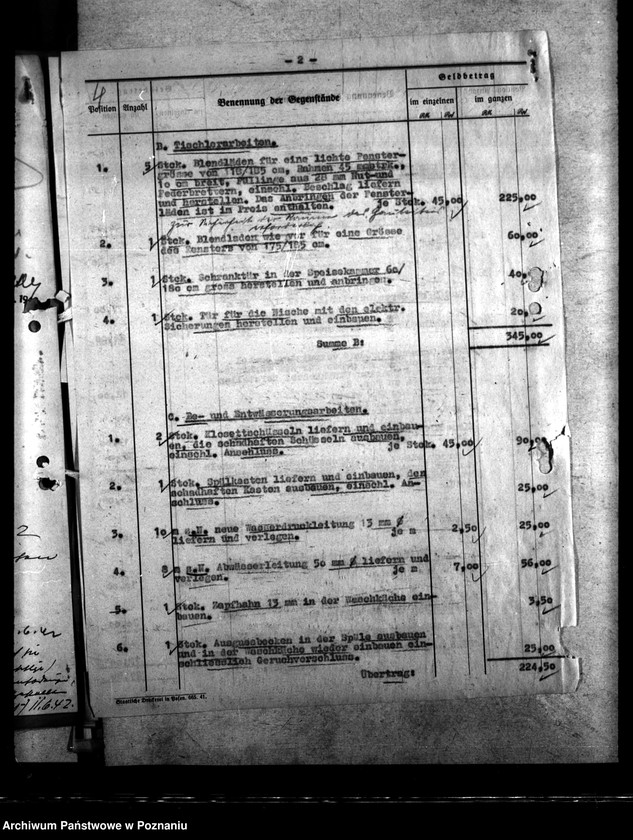 - 2 -
4
Geldbetrag
Position Anzahl Benennung der Gegenstände im einzelnen im ganzen
RM Rpf RM Rpf
B. Tischlerarbeiten.
1. 5 Stck. Blendläden für eine lichte Fenster-
grösse von 118/185 cm, Rahmen 45 mm strk.,
10 cm breit, Füllinge aus 28 mm Nut-und
Federbrettern, einschl. Beschlag liefern
und herstellen. Das Anbringen der Fenster-
läden ist im Preis enthalten. je Stck. 45,00 225,00
2. 1 Stck. Blendladen wie vor für eine Grösse
des Fensters von 175/185 cm. 60,00
3. 1 Stck. Schranktür in der Speisekammer 60/
180 cm gross herstellen und anbringen. 40,
4. 1 Stck. Tür für die Nische mit den elektr.
Sicherungen herstellen und einbauen. 20,
Summe B: 345,00
C. Be- und Entwässerungsarbeiten.
1. 2 Stck. Klosettschüsseln liefern und einbau-
en, die schadhaften Schüsseln ausbauen,
einschl. Anschluss. je Stck. 45,00 90,00
2. 1 Stck. Spülkasten liefern und einbauen, den
schadhaften Kasten ausbauen, einschl. An-
schluss. 25,00
3. 10 m neue Wasserdruckleitung 13 mm ∅
liefern und verlegen. je m 2,50 25,00
4. 8 m Abwässerleitung 50 mm ∅ liefern und
verlegen. je m 7,00 56,00
5. 1 Stck. Zapfhahn 13 mm in der Waschküche ein-
bauen. 3,50
6. 1 Stck. Ausgussbecken in der Spüle ausbauen
und in der Waschküche wieder einbauen ein-
schliesslich Geruchverschluss. 25,00
Übertrag: 224,50
11.6.42.
Archiwum Państwowe w Poznaniu